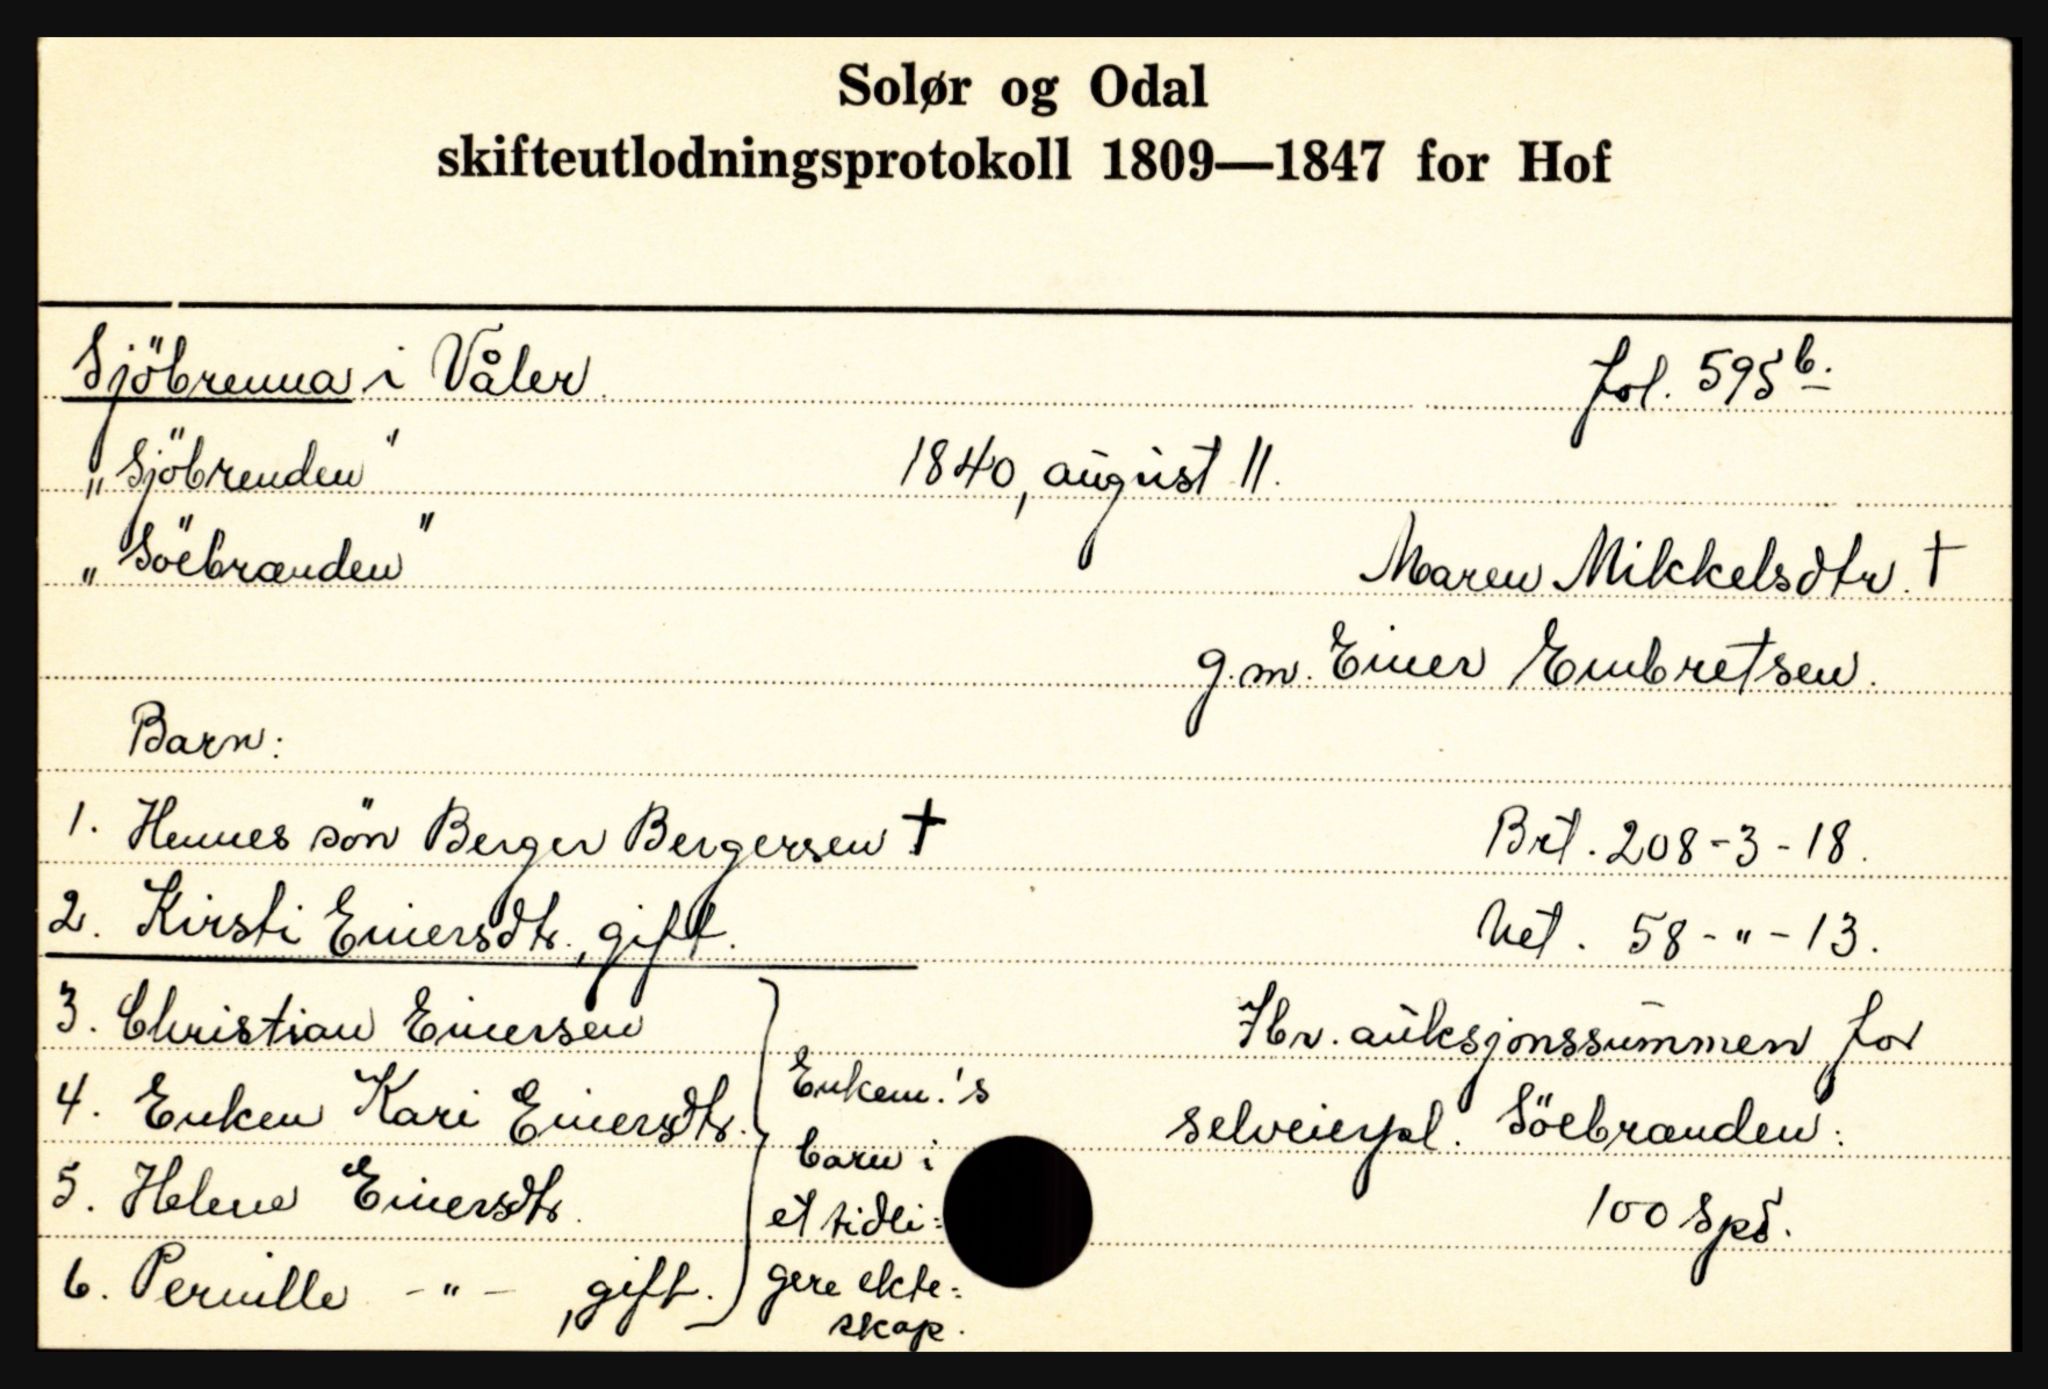 Solør og Odal
skifteutlodningsprotokoll 1809—1847 for Hof
Sjöbrenna i Våler. fol. 595 b.
„Sjöbrenden" 1840, august 11.
„Söebrænden" Maren Mikkelsdtr. †
g.m. Einer Embretsen.
Barn:
1. Hennes sön Berger Bergersen † Brt. 208-3-18.
2. Kirsti Einersdtr., gift. Net. 58-"-13.
3. Christian Einersen Hr. auksjonssummen for
4. Enken Kari Einersdtr. Enkem.'s selveierpl. Söebrænden:
5. Helene Einersdtr. barn i et tidli= 100 Spd.
6. Pernille -"-, gift. gere ekte=
skap.